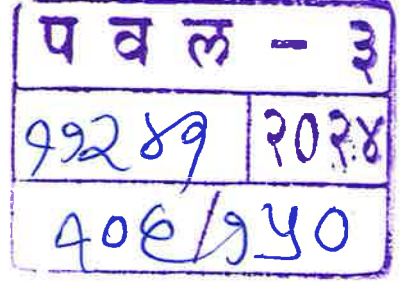 प व ल - ३
११२४१ २०२४
१०९/१५०